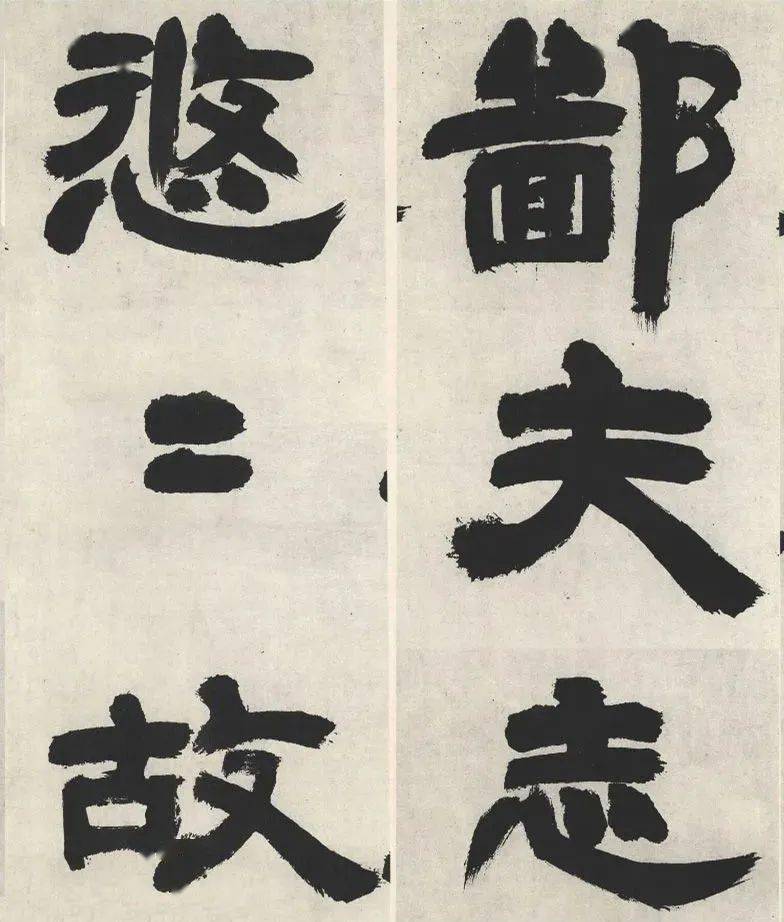 鄙夫志
悠〻故